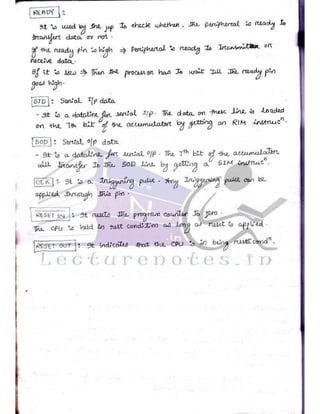 READY :
It is used by the μp to check whether, the peripheral is ready to
transfert data or not.
If the ready pin is high ⇒ Peripheral is ready to transmit or
receive data.
If it is low ⇒ then the processor has to wait till the ready pin
goes high.
SID : Serial I/p data
- It is a dataline for serial i/p. The data on these line is loaded
on the 7th bit of the accumulator by getting an RIM instrucn.
SOD : Serial o/p data
- It is a dataline for serial o/p. The 7th bit of the accumulator
will transfer to the SOD line by getting a SIM instrucn.
: It is a triggering pulse. Any triggering pulse can be
applied through this pin.
RESET IN : It resets the program counter to zero.
The CPU is held in rest condition as long as reset is applied.
RESET OUT : It indicates that the CPU is in being reset condn.
Lecturenotes.in